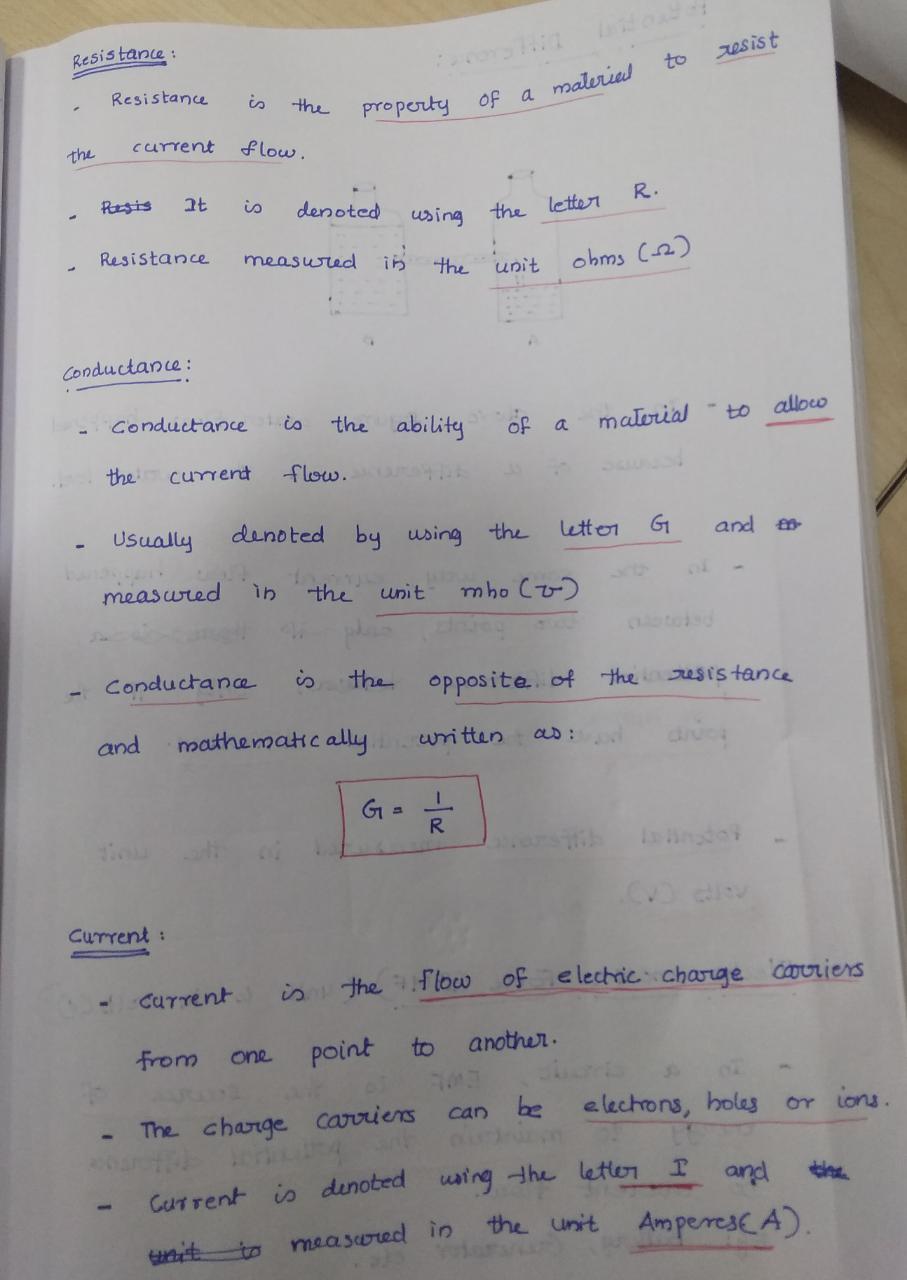 Resistance:
- Resistance is the property of a material to resist
the current flow.
- Resis It is denoted using the letter R.
- Resistance measured in the unit ohms (Ω)
Conductance:
- Conductance is the ability of a material to allow
the current flow.
- Usually denoted by using the letter G and
measured in the unit mho (℧)
- Conductance is the opposite of the resistance
and mathematically written as:
G = 1/R
Current:
- Current is the flow of electric charge carriers
from one point to another.
- The charge carriers can be electrons, holes or ions.
- Current is denoted using the letter I and the
unit is measured in the unit Amperes(A).